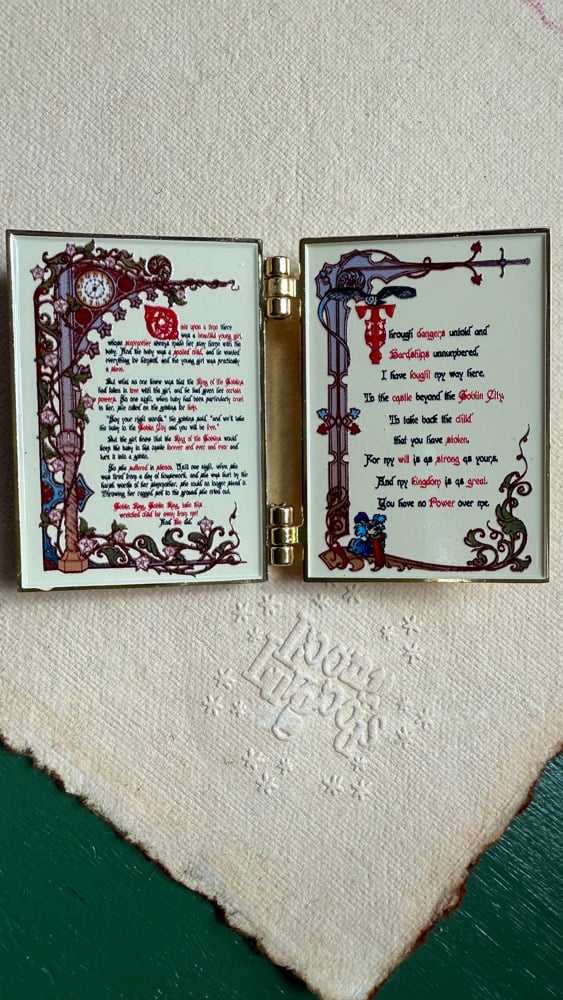 Once upon a time there
was a beautiful young girl,
whose stepmother always made her stay home with the
baby. And the baby was a spoiled child, and he wanted
everything for himself, and the young girl was practically
a slave.
But what no one knew was that the King of the Goblins
had fallen in love with the girl, and he had given her certain
powers. So one night, when the baby had been particularly cruel
to her, she called on the goblins for help.
"Say your right words," the goblins said, "and we'll take
the baby to the Goblin City and you will be free."
But the girl knew that the King of the Goblins would
keep the baby in his castle forever and ever and ever and
turn it into a goblin.
So she suffered in silence. Until one night, when she
was tired from a day of housework, and she was hurt by the
harsh words of her stepmother, she could no longer stand it
Throwing her ragged self to the ground she cried out.
Goblin King, Goblin King, take this
wretched child far away from me!
And he did.
Through dangers untold and
Hardships unnumbered,
I have fought my way here,
To the castle beyond the Goblin City,
To take back the child
that you have stolen.
For my will is as strong as yours,
And my kingdom is as great.
You have no Power over me.